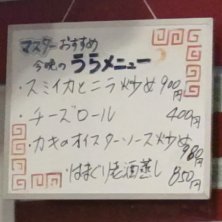 マスターおすすめ
今晩のうらメニュー
・スミイカとニラ炒め 900円
・チーズロール 400円
・カキのオイスターソース炒め 980円
・はまぐり老酒蒸し 850円